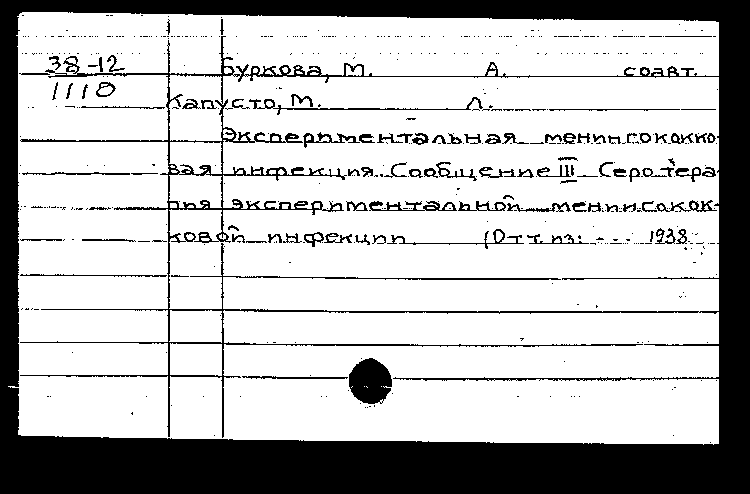 38-12 Буркова, М. А. соавт.
1110
Капусто, М. Л.
Экспериментальная менингококко-
вая инфекция. Сообщение III. Серотера-
пия экспериментальной менингокок-
ковой инфекции. (Отт. из: --- 1938